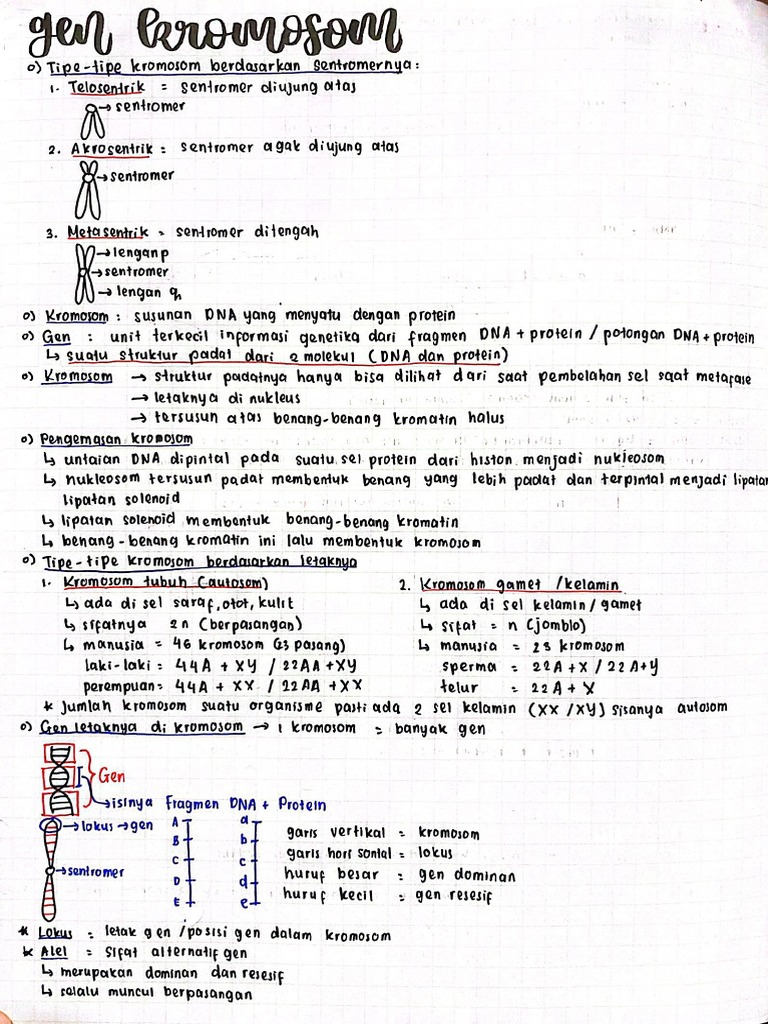 gen kromosom
o) Tipe-tipe kromosom berdasarkan sentromernya:
1. Telosentrik = sentromer diujung atas
→ sentromer
2. Akrosentrik = sentromer agak diujung atas
→ sentromer
3. Metasentrik = sentromer ditengah
→ lengan p
→ sentromer
→ lengan q
o) Kromosom : susunan DNA yang menyatu dengan protein
o) Gen : unit terkecil informasi genetika dari fragmen DNA + protein / potongan DNA + protein
↳ suatu struktur padat dari 2 molekul (DNA dan protein)
o) Kromosom → struktur padatnya hanya bisa dilihat dari saat pembelahan sel saat metafase
→ letaknya di nukleus
→ tersusun atas benang-benang kromatin halus
o) Pengemasan kromosom
↳ untaian DNA dipintal pada suatu sel protein dari histon menjadi nukleosom
↳ nukleosom tersusun padat membentuk benang yang lebih padat dan terpintal menjadi lipatan
lipatan solenoid
↳ lipatan solenoid membentuk benang-benang kromatin
↳ benang-benang kromatin ini lalu membentuk kromosom
o) Tipe-tipe kromosom berdasarkan letaknya
1. Kromosom tubuh (autosom)
↳ ada di sel saraf, otot, kulit
↳ sifatnya 2n (berpasangan)
↳ manusia = 46 kromosom (23 pasang)
laki-laki : 44A + XY / 22AA + XY
perempuan = 44A + XX / 22AA + XX
2. Kromosom gamet /kelamin
↳ ada di sel kelamin/gamet
↳ sifat = n (jomblo)
↳ manusia = 23 kromosom
sperma = 22A+X / 22A+Y
telur = 22A + X
* Jumlah kromosom suatu organisme pasti ada 2 sel kelamin (XX/XY) sisanya autosom
o) Gen letaknya di kromosom → 1 kromosom = banyak gen
Gen
→ isinya Fragmen DNA + Protein
→ lokus → gen
→ sentromer
A
B
C
D
E
a
b
c
d
e
garis vertikal = kromosom
garis horisontal = lokus
huruf besar = gen dominan
huruf kecil = gen resesif
* Lokus = letak gen /posisi gen dalam kromosom
* Alel = sifat alternatif gen
↳ merupakan dominan dan resesif
↳ selalu muncul berpasangan